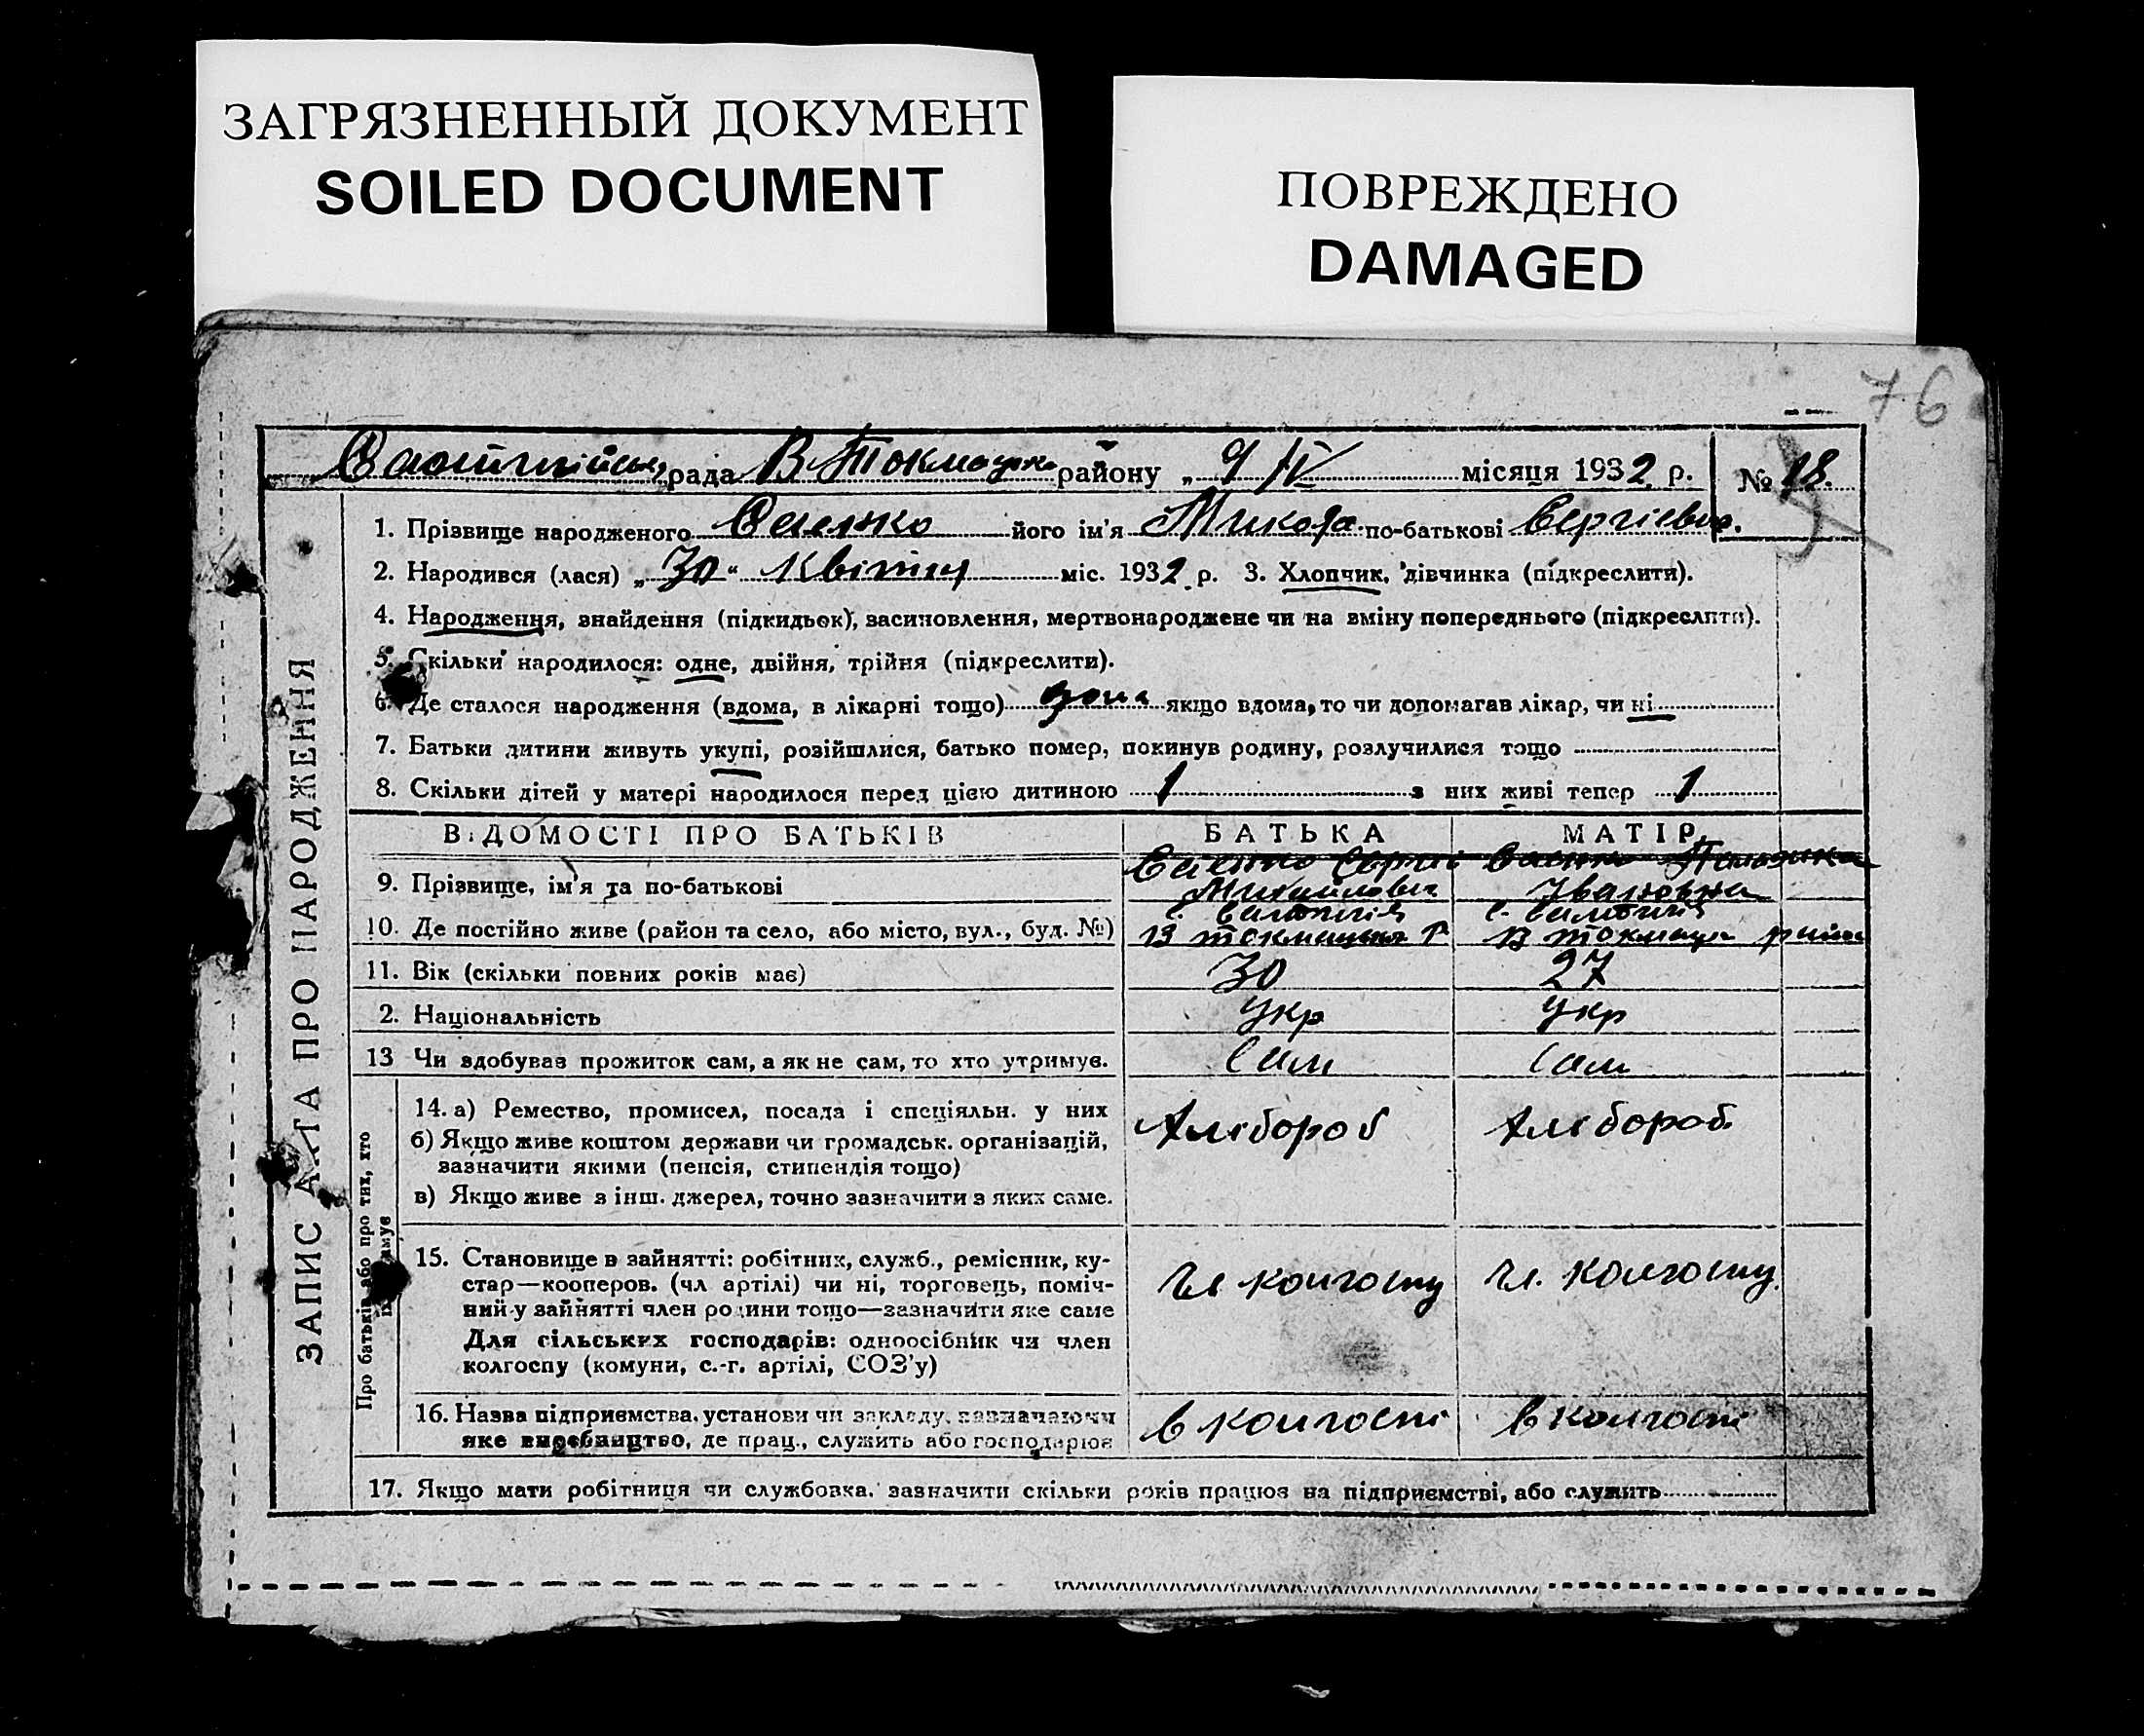 ЗАГРЯЗНЕННЫЙ ДОКУМЕНТ
SOILED DOCUMENT
ПОВРЕЖДЕНО
DAMAGED
76
рада В Токмацьк району „ 9 IV місяця 1932 р. № 18.
ЗАПИС АКТА ПРО НАРОДЖЕННЯ
1. Прізвище народженого його ім'я Микола по-батькові Сергієвич.
2. Народився (лася) „30" Квітня міс. 1932 р. 3. Хлопчик, дівчинка (підкреслити).
4. Народження, знайдення (підкидьок), засиновлення, мертвонароджене чи на вміну попереднього (підкреслити).
5. Скільки народилося: одне, двійня, трійня (підкреслити).
6. Де сталося народження (вдома, в лікарні тощо) дома якщо вдома, то чи допомагав лікар, чи ні
7. Батьки дитини живуть укупі, розійшлися, батько помер, покинув родину, розлучилися тощо
8. Скільки дітей у матері народилося перед цією дитиною 1 з них живі тепер 1
ВІДОМОСТІ ПРО БАТЬКІВ БАТЬКА МАТІР
9. Прізвище, ім'я та по-батькові Сергій Михайлович Івановна
10. Де постійно живе (район та село, або місто, вул., буд. №) с. В Токмацьк Р с. В Токмацьк район
11. Вік (скільки повних років має) 30 27
2. Національність Укр Укр
13 Чи здобував прожиток сам, а як не сам, то хто утримує. Сам Сам
Про батьків або про тих, хто їх утримує
14. а) Ремество, промисел, посада і спеціяльн. у них Хлібороб Хлібороб.
б) Якщо живе коштом держави чи громадськ. організацій,
зазначити якими (пенсія, стипендія тощо)
в) Якщо живе з інш. джерел, точно зазначити з яких саме.
15. Становище в зайнятті: робітник, служб., ремісник, ку-
стар—кооперов. (чл артілі) чи ні, торговець, поміч- Чл колгоспу Чл. колгоспу.
ний у зайнятті член родини тощо—зазначити яке саме
Для сільських господарів: одноосібник чи член
колгоспу (комуни, с.-г. артілі, СОЗ'у)
16. Назва підприємства, установи чи закладу, зазначаючи в колгоспі в колгоспі
яке виробництво, де прац., служить або господарює
17. Якщо мати робітниця чи службовка, зазначити скільки років працює на підприємстві, або служить